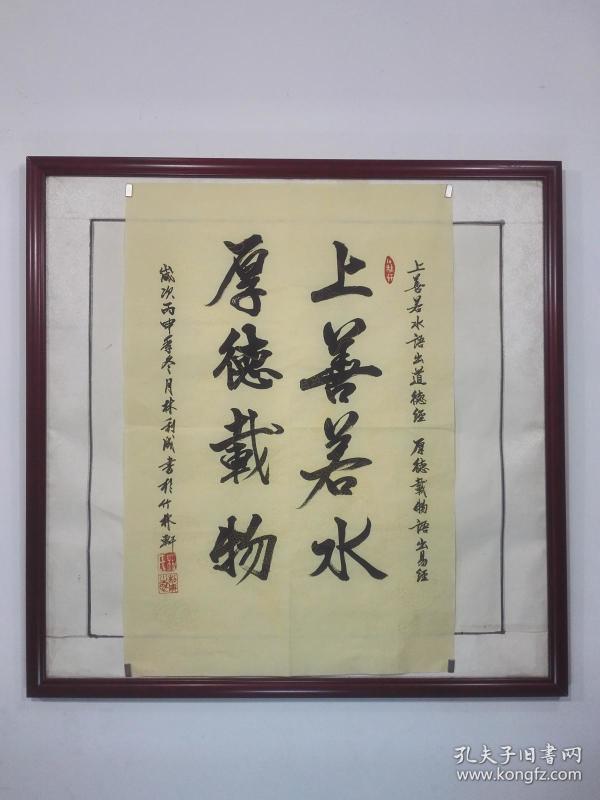 上善若水語出道德經 厚德載物語出易經
上善若水
厚德載物
歲次丙申年冬月林利成書於竹林軒
孔夫子旧书网
www.kongfz.com